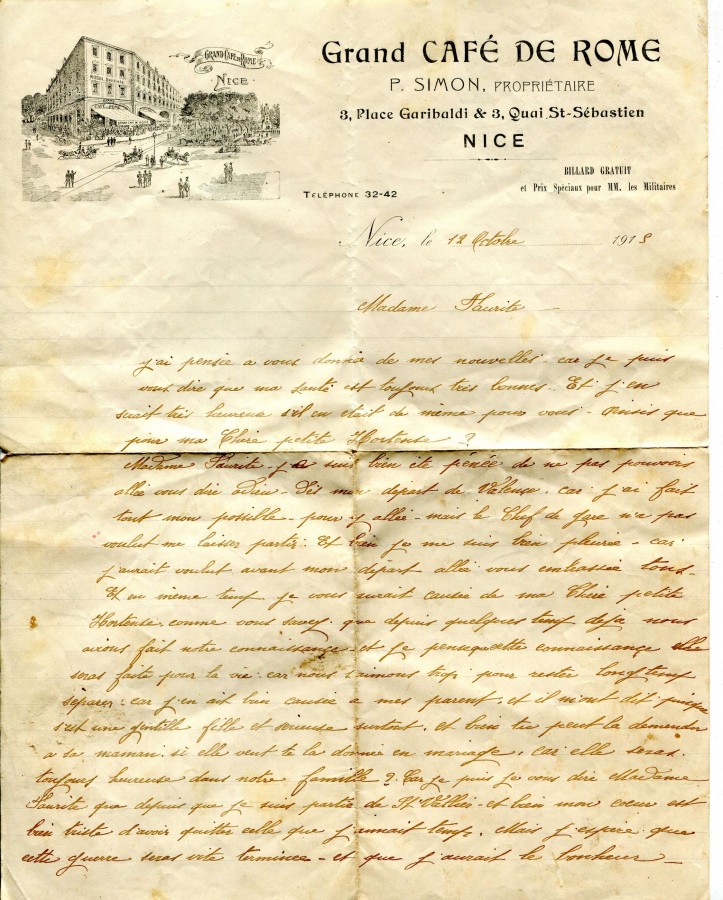 GRAND CAFÉ DE ROME
NICE
Grand CAFÉ DE ROME
P. SIMON, PROPRIÉTAIRE
3, Place Garibaldi & 3, Quai St-Sébastien
NICE
BILLARD GRATUIT
et Prix Spéciaux pour MM. les Militaires
TÉLÉPHONE 32-42
Nice, le 12 Octobre 1915
Madame Faurite
j'ai pensée a vous donnée de mes nouvelles car je puis
vous dire que ma santé est toujours très bonnes. Et j'en
serait très heureux s'il en était de même pour vous ainsis que
pour ma Chère petite Hortense ?
Madame Faurite j'e suis bien été pénée de ne pas pouvoirs
allée vous dire adieu Dès mon départ de Valence car j'ai fait
tout mon possible pour y allée mais le Chef de gare n'a pas
voulut me laisser partir. Et bien je me suis bien pleurée car
j'aurait voulut avant mon départ allée vous embrassée tous.
Et en même temp je vous aurait causée de ma Chère petite
Hortense comme vous savez que depuis quelques temp déja nous
avions fait notre connaissance et je pense que cette connaissance elle
seras faite pour la vie car nous s'aimons trop pour rester longtemp
séparer car j'en ait bien causée a mes parent et il m'ont dit puisque
s'est une gentille fille et serieuse surtout, et bien tu peut la demander
a sa maman si elle veut te la donnée en mariage, car elle seras
toujours heureuse dans notre famille ? Car je puis je vous dire Madame
Faurite que depuis que je suis partie de St Vallier et bien mon coeur est
bien triste d'avoir quitter celle que j'aimait temp. Mais j'espère que
cette guerre seras vite terminée et que j'aurait le bonheur